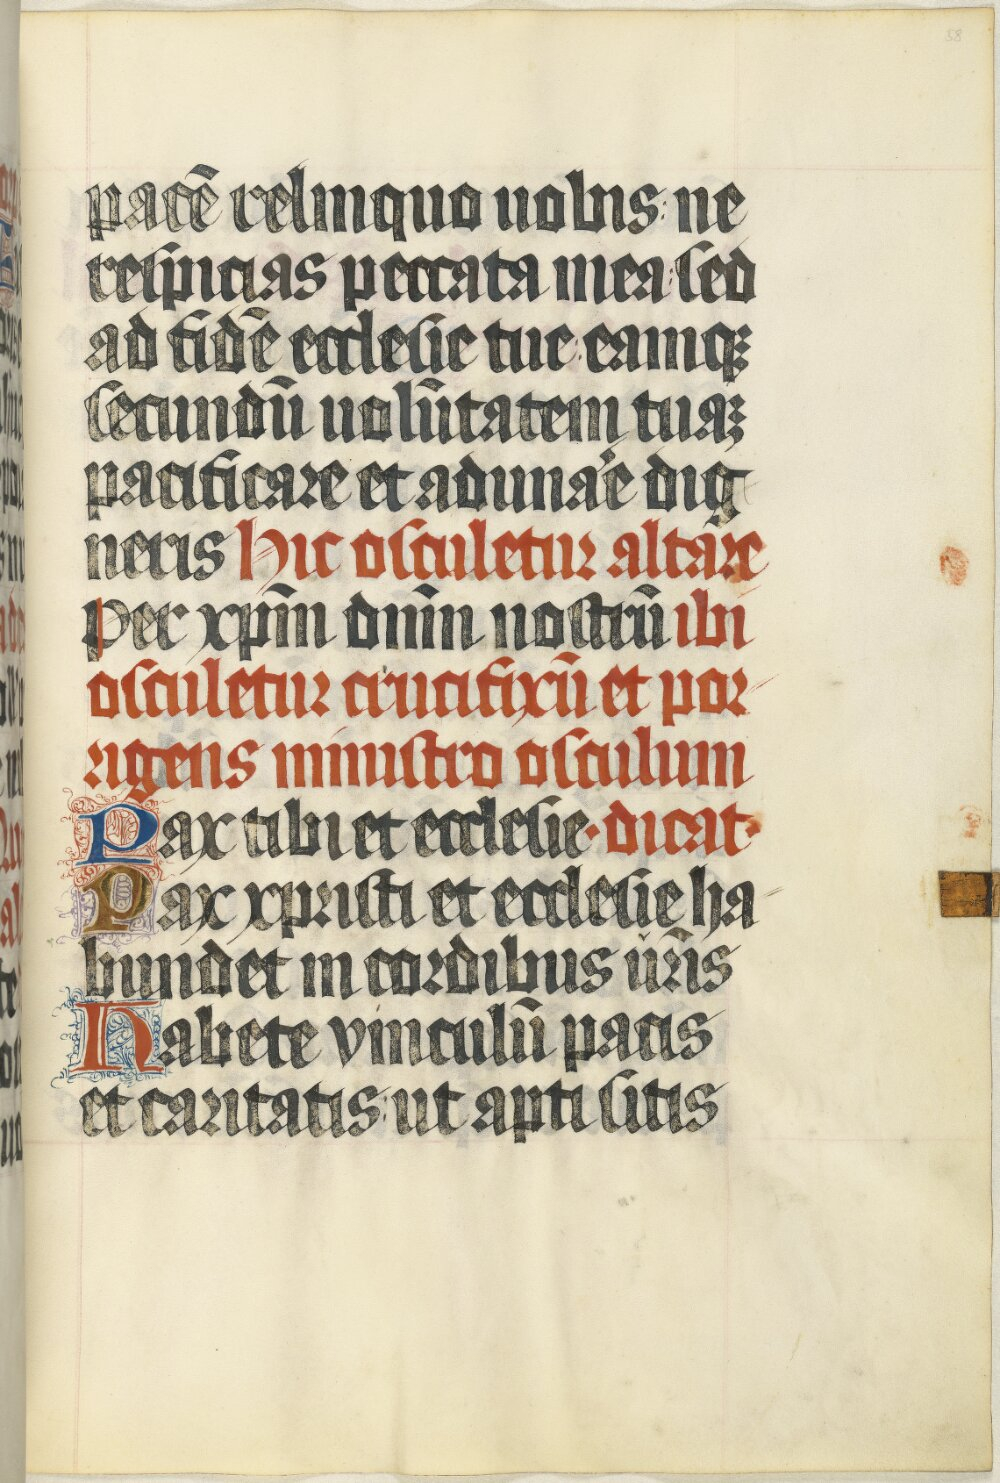 58
pacē relinquo uobis: ne
respicias peccata mea: sed
ad fidē ecclesie tue: eamqꝫ
secundū uolūtatem tuaꝫ
pacificare et adunare dig
neris hic osculetur altare
Per xp̄m dn̄m nostrū ibi
osculetur crucifixū et por
rigens ministro osculum
Pax tibi et ecclesie · dicat ·
Pax xpristi et ecclesie ha
bundet in cordibus ūris
Habete vinculū pacis
et caritatis: ut apti sitis